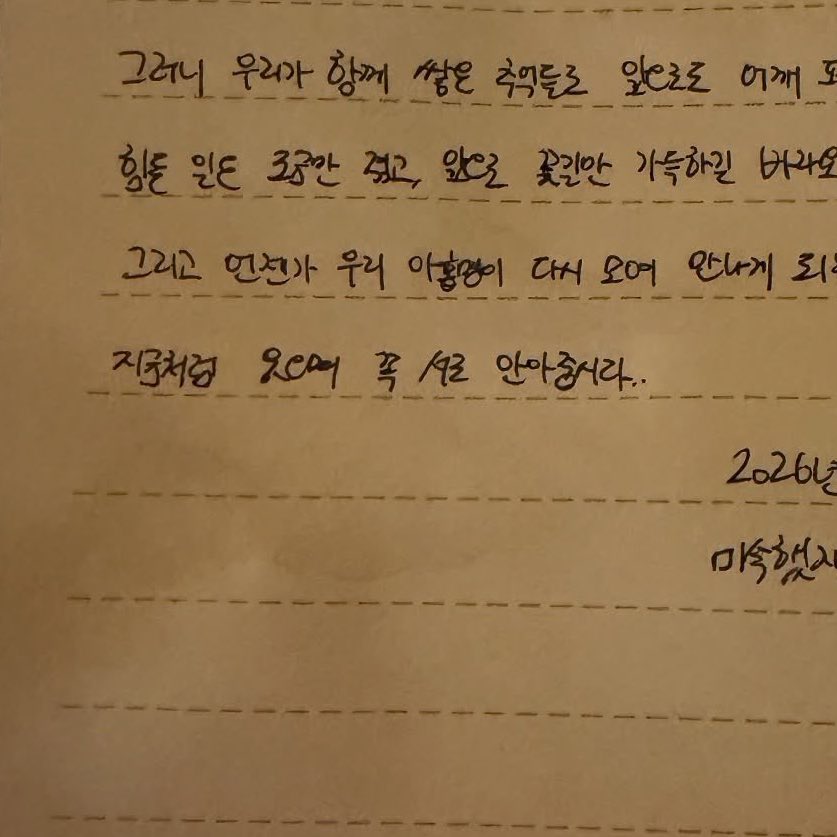 그러니 우리가 함께 쌓은 추억들로 앞으로도 어깨
힘든 일은 조금만 겪고, 앞으로 꽃길만 가득하길
그리고 언젠가 우리 아홉명이 다시 모여 만나게
지금처럼 웃으며 꼭 서로 안아줍시다..
2026년